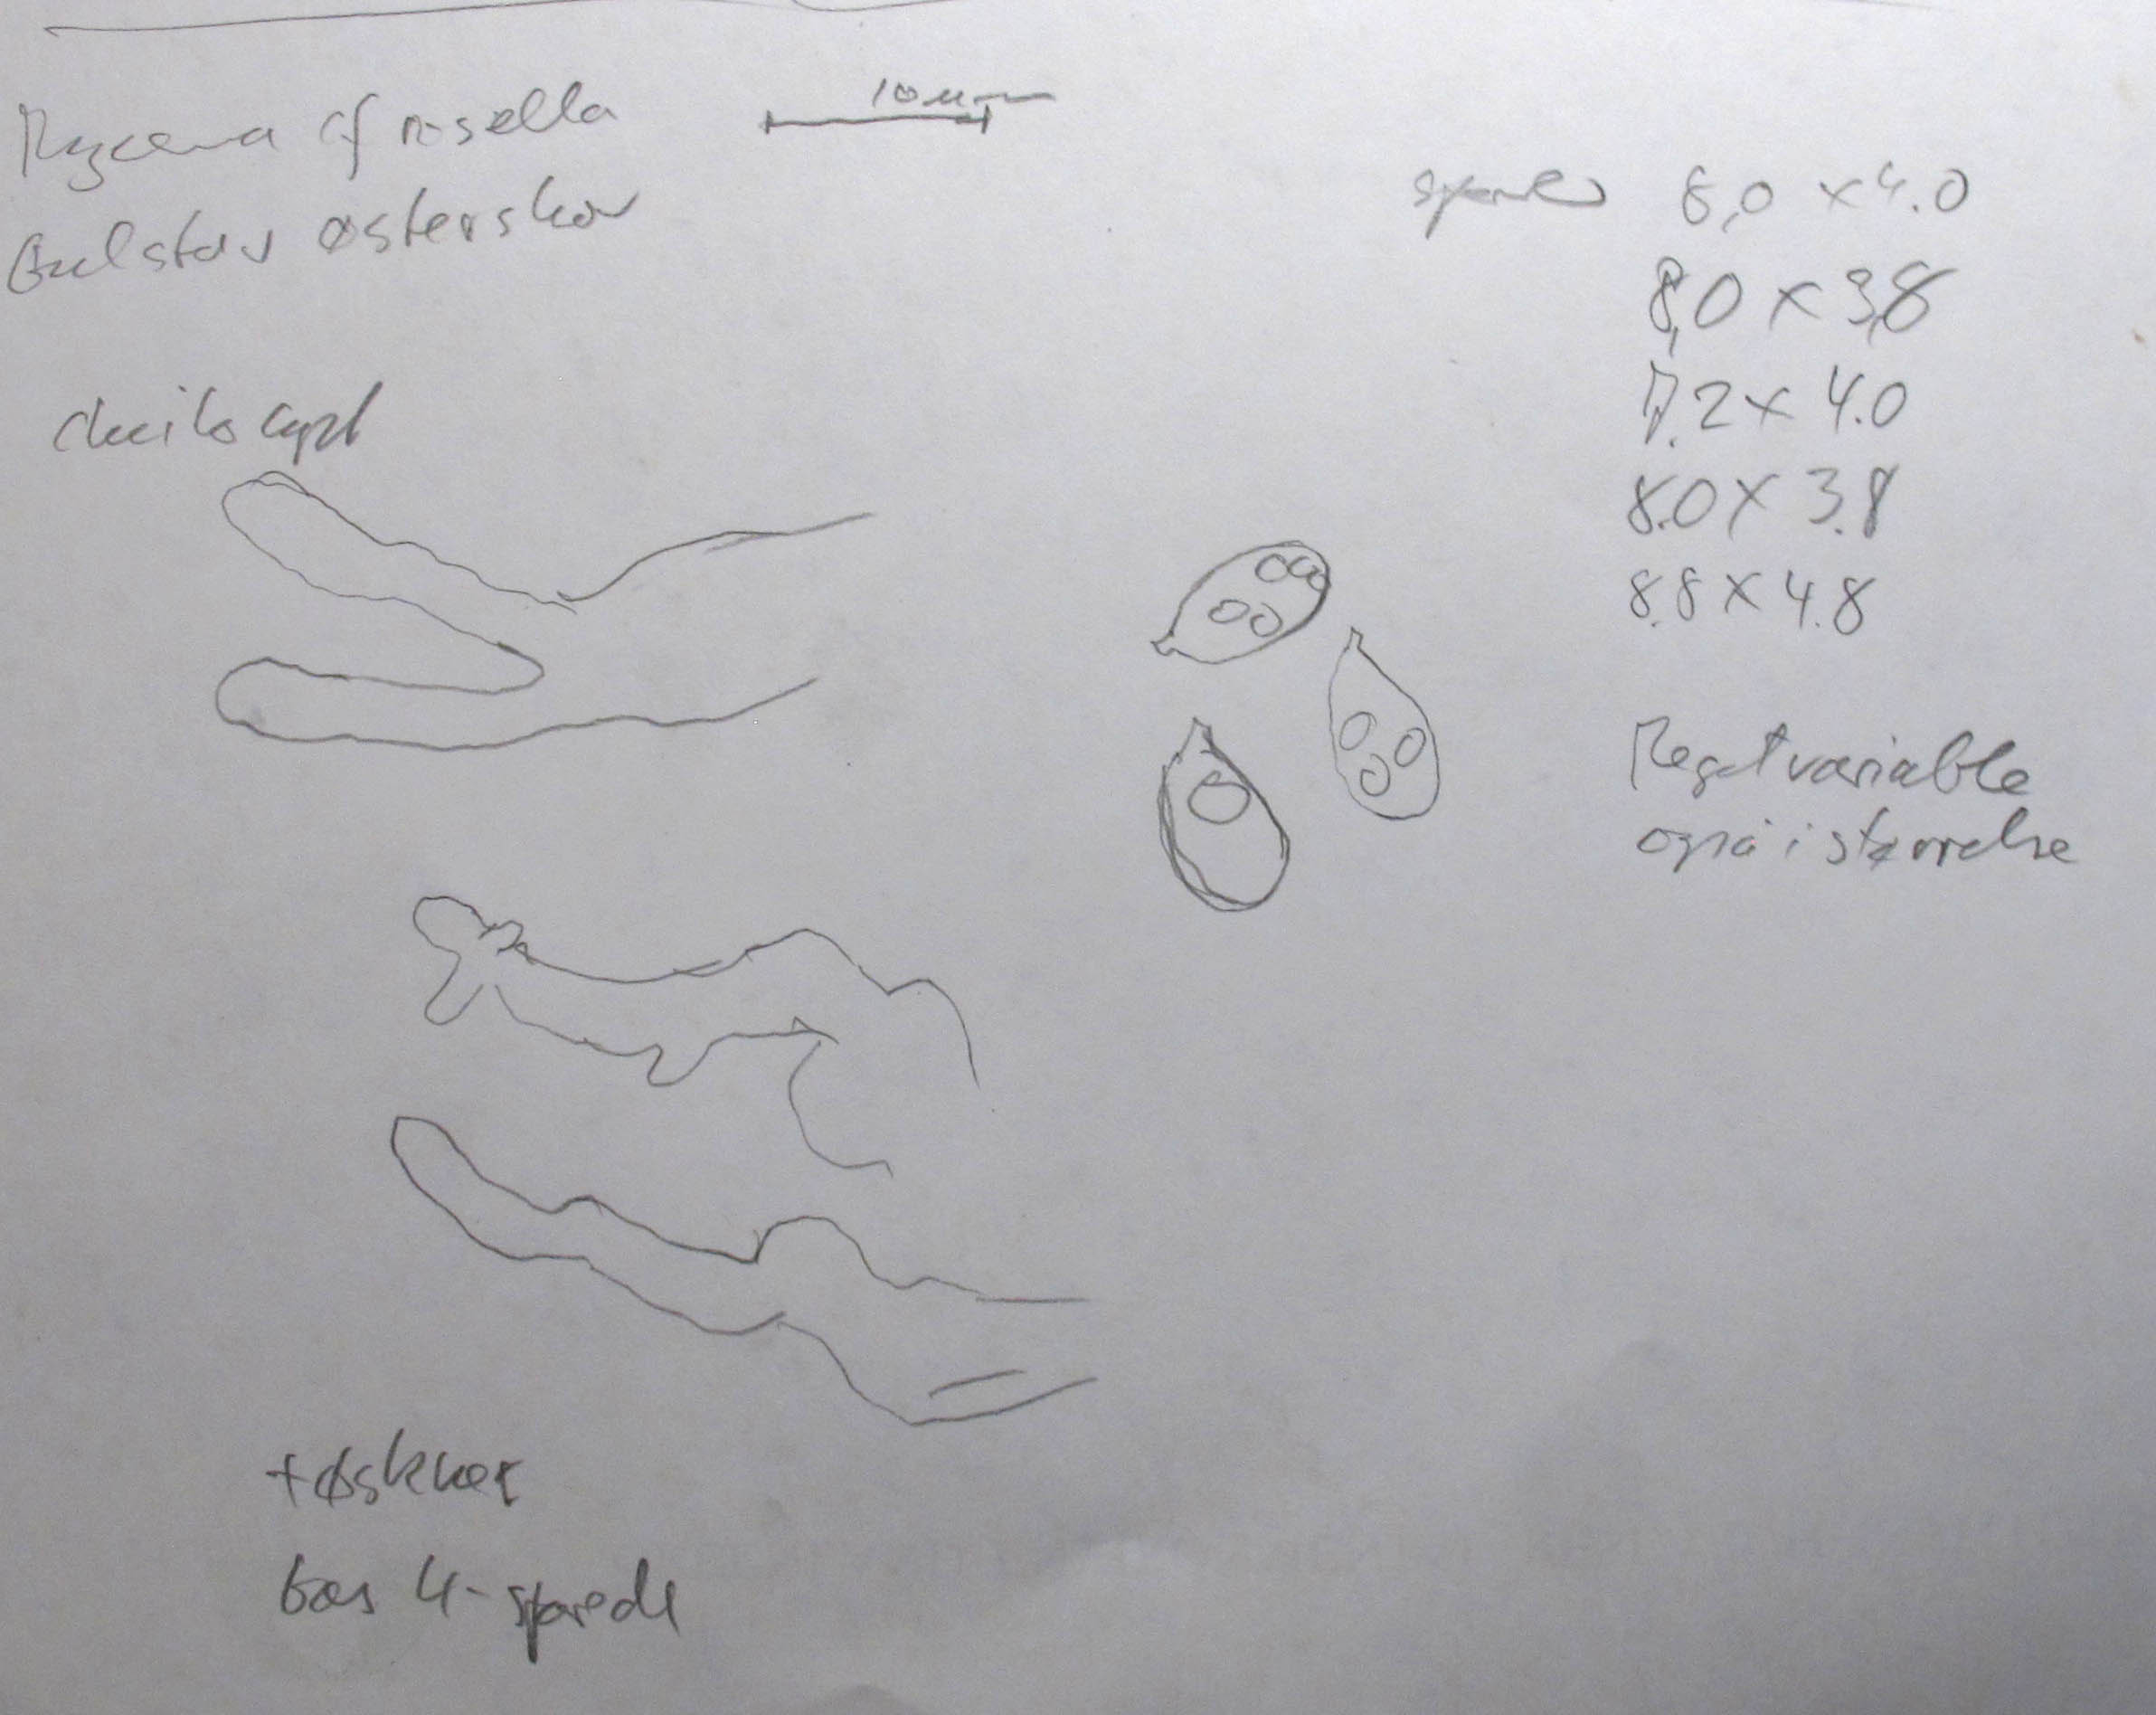 Mycena cf rosella
Gulstav østerskov
10 µm
sporer 8,0 x 4.0
8,0 x 3,8
7.2 x 4.0
8.0 x 3.8
8.8 x 4.8
cheilocyst
Meget variable
også i størrelse
+ øskner
bas 4-sporede